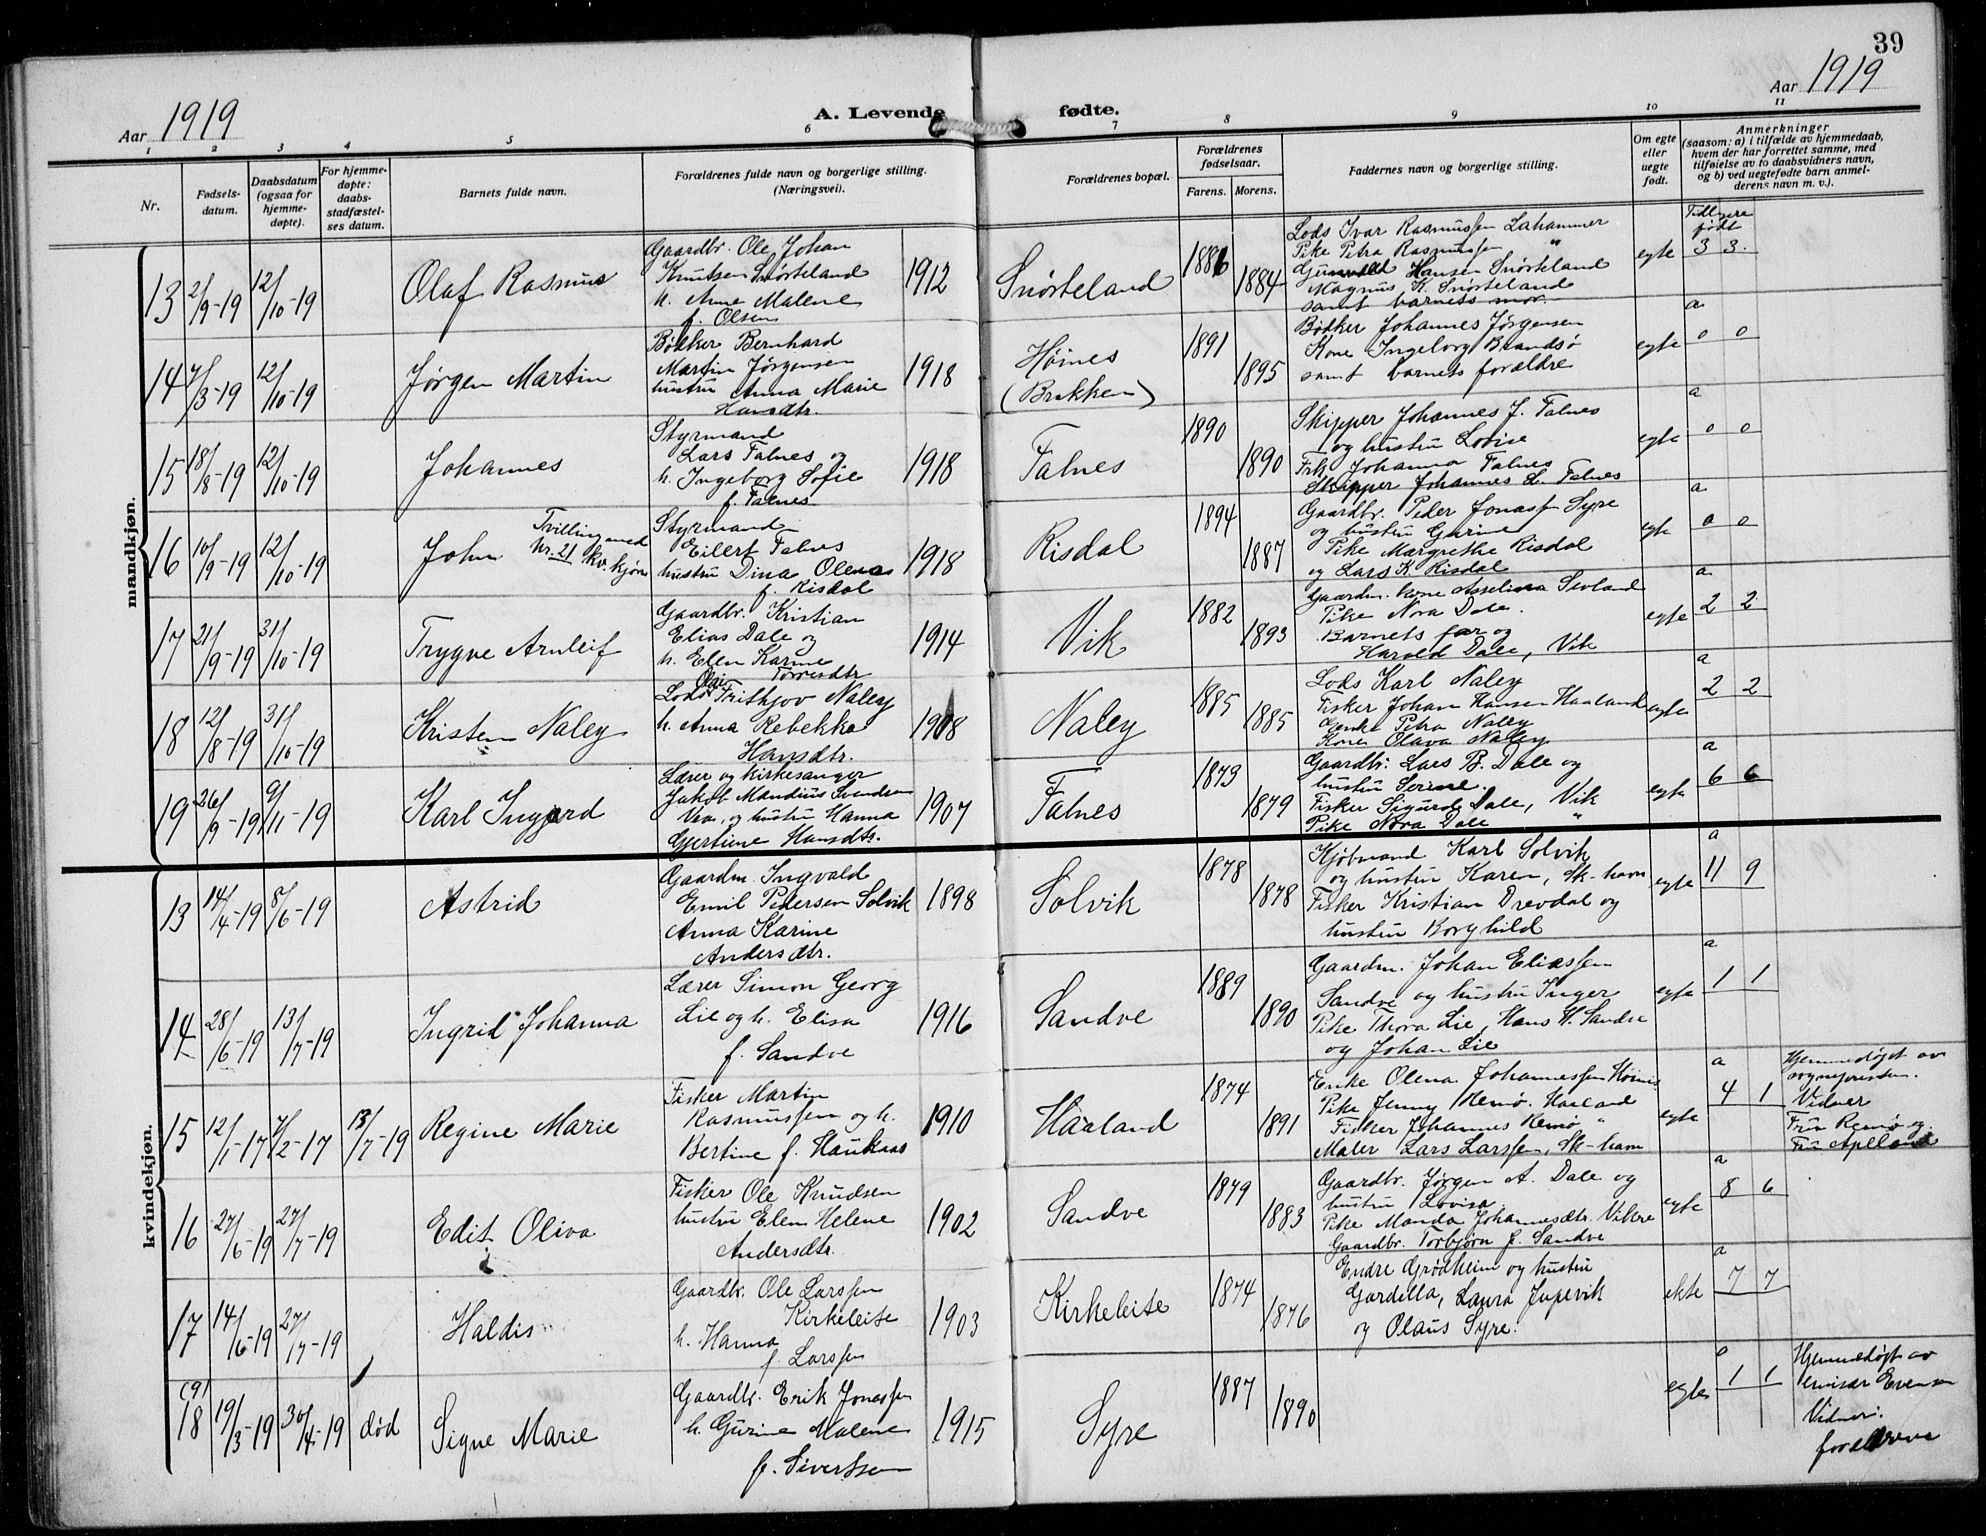 39
Aar 1919
A. Levende fødte.
Aar 1919
1 2 3 4 5 6 7 8 9 10 11
Nr.
Fødsels-
datum.
Daabsdatum
(ogsaa for
hjemme-
døpte).
For hjemme-
døpte:
daabs-
stadfæstel-
ses datum.
Barnets fulde navn.
Forældrenes fulde navn og borgerlige stilling.
(Næringsvei).
Forældrenes bopæl.
Forældrenes
fødselsaar.
Farens. Morens.
Faddernes navn og borgerlige stilling.
Om egte
eller
uegte
født.
Anmerkninger
(saasom: a) i tilfælde av hjemmedaab,
hvem der har forrettet samme, med
tilføielse av to daabsvidners navn,
og b) ved uegtefødte barn anmel-
derens navn m. v.).
mandkjøn.
13 2/9-19 12/10-19 Olaf Rasmus
Gaardbr. Ole Johan
Knutsen Snørteland
h. Anne Malene
f. Olsen
1912 Snørteland 1886 1884
Lods Ivar Rasmussen Lahammer
Pike Petra Rasmussen "
Hansen Snørteland
Magnus K. Snørteland
samt barnets mor
egte
Tidligere
født
3 3
14 7/3-19 12/10-19 Jørgen Martin
Bøkker Bernhard
Martin Jørgensen
hustru Anna Marie
Hansdtr.
1918 Høines
(Brekken)
1891 1895
Bødker Johannes Jørgensen
Kone Ingeborg Brandsø
samt barnets forældre
egte
a
0 0
15 18/8-19 12/10-19 Johannes
Styrmand
Lars Falnes og
h. Ingeborg Sofie
f. Falnes
1918 Falnes 1890 1890
Skipper Johannes J. Falnes
og hustru Lovise
Frk. Johanna Falnes
Skipper Johannes L. Falnes
egte
a
0 0
16 10/9-19 12/10-19 John
Tvilling med
Nr. 21 kv. kjøn
Styrmand
Eilert Falnes
hustru Dina Olena
f. Risdal
1918 Risdal 1894 1887
Gaardbr. Peder Jonassen Syre
og hustru Gurine
Pike Margrethe Risdal
og Lars K. Risdal
egte
a
0 0
17 21/9-19 31/10-19 Trygve Arnleif
Gaardbr. Kristian
Elias Dale og
h. Elen Karine
Torresdtr
1914 Vik 1882 1893
Gaardm. kone Asseline Sevland
Pike Nora Dale.
Barnets far og
Harold Dale, Vik
egte
a
2 2
18 12/8-19 31/10-19 Kristen Naley
Lods Frithjov Naley
h. Anna Rebekka
Hansdtr.
1908 Naley 1885 1885
Lods Karl Naley
Fisker Johan Hansen Haaland
Enke Petra Naley
Kone Olava Naley
egte
a
2 2
19 26/9-19 9/11-19 Karl Ingard
Lærer og kirkesanger
Jakob Mandius Svendsen
Vaa, og hustru Hanna
Gjertine Hansdtr.
1907 Falnes 1879 1879
Gaardbr. Lars B. Dale og
hustru Serine.
Fisker Sigurd Dale, Vik
Pike Nora Dale "
egte
a
6 6
kvindekjøn.
13 14/4-19 8/6-19 Astrid
Gaardm. Ingvald
Emil Pedersen Solvik
Anna Karine
Andersdtr.
1898 Solvik 1878 1878
Kjøbmand Karl Solvik
og hustru Karen, Sk-havn
Fisker Kristian Drevdal og
hustru Borghild
egte
a
11 9
14 28/6-19 13/7-19 Ingrid Johanna
Lærer Simon Georg
Lie og h. Elisa
f. Sandve
1916 Sandve 1889 1890
Gaardm. Johan Eliassen
Sandve og hustru Inger
Pike Thora Lie, Hans H. Sandve
og Johan Lie
egte
a
1 1
15 12/1-17 7/2-17 13/7-19 Regine Marie
Fisker Martin
Rasmussen og h.
Bertine f. Haukaas
1910 Haaland 1874 1891
Enke Olena Johannessen Høines
Pike Jenny Hemø. Haaland
Fisker Johannes Hemø "
Maler Lars Larssen, Sk-havn
egte
a
4 1
Hjemmedøpt av
sognepresten.
Vidner
Fru Remø og.
Fru Apeland
16 27/6-19 27/7-19 Edit Oliva
Fisker Ole Knudsen
hustru Elen Helene
Andersdtr.
1902 Sandve 1879 1883
Gaardbr. Jørgen A. Dale og
hustru Lovisa
Pike Manda Johannesdtr. Vikre
Gaardbr. Torbjørn J. Sandve
egte
a
8 6
17 14/6-19 27/7-19 Haldis
Gaardb. Ole Larssen
Kirkeleite
h. Hanna
f Larssen
1903 Kirkeleite 1874 1876
Endre Grødheim og hustru
Gardella, Laura Jupevik
og Olaus Syre.
ekte
a
7 7
(9)
18 19/3-19 30/4-19 død Signe Marie
Gaardb. Erik Jonassen
h. Gurine Malene
f. Sivertsen
1915 Syre 1887 1890
egte
1 1
Hjemmedøpt av
emisær Evensen
Vidner:
foreldrene